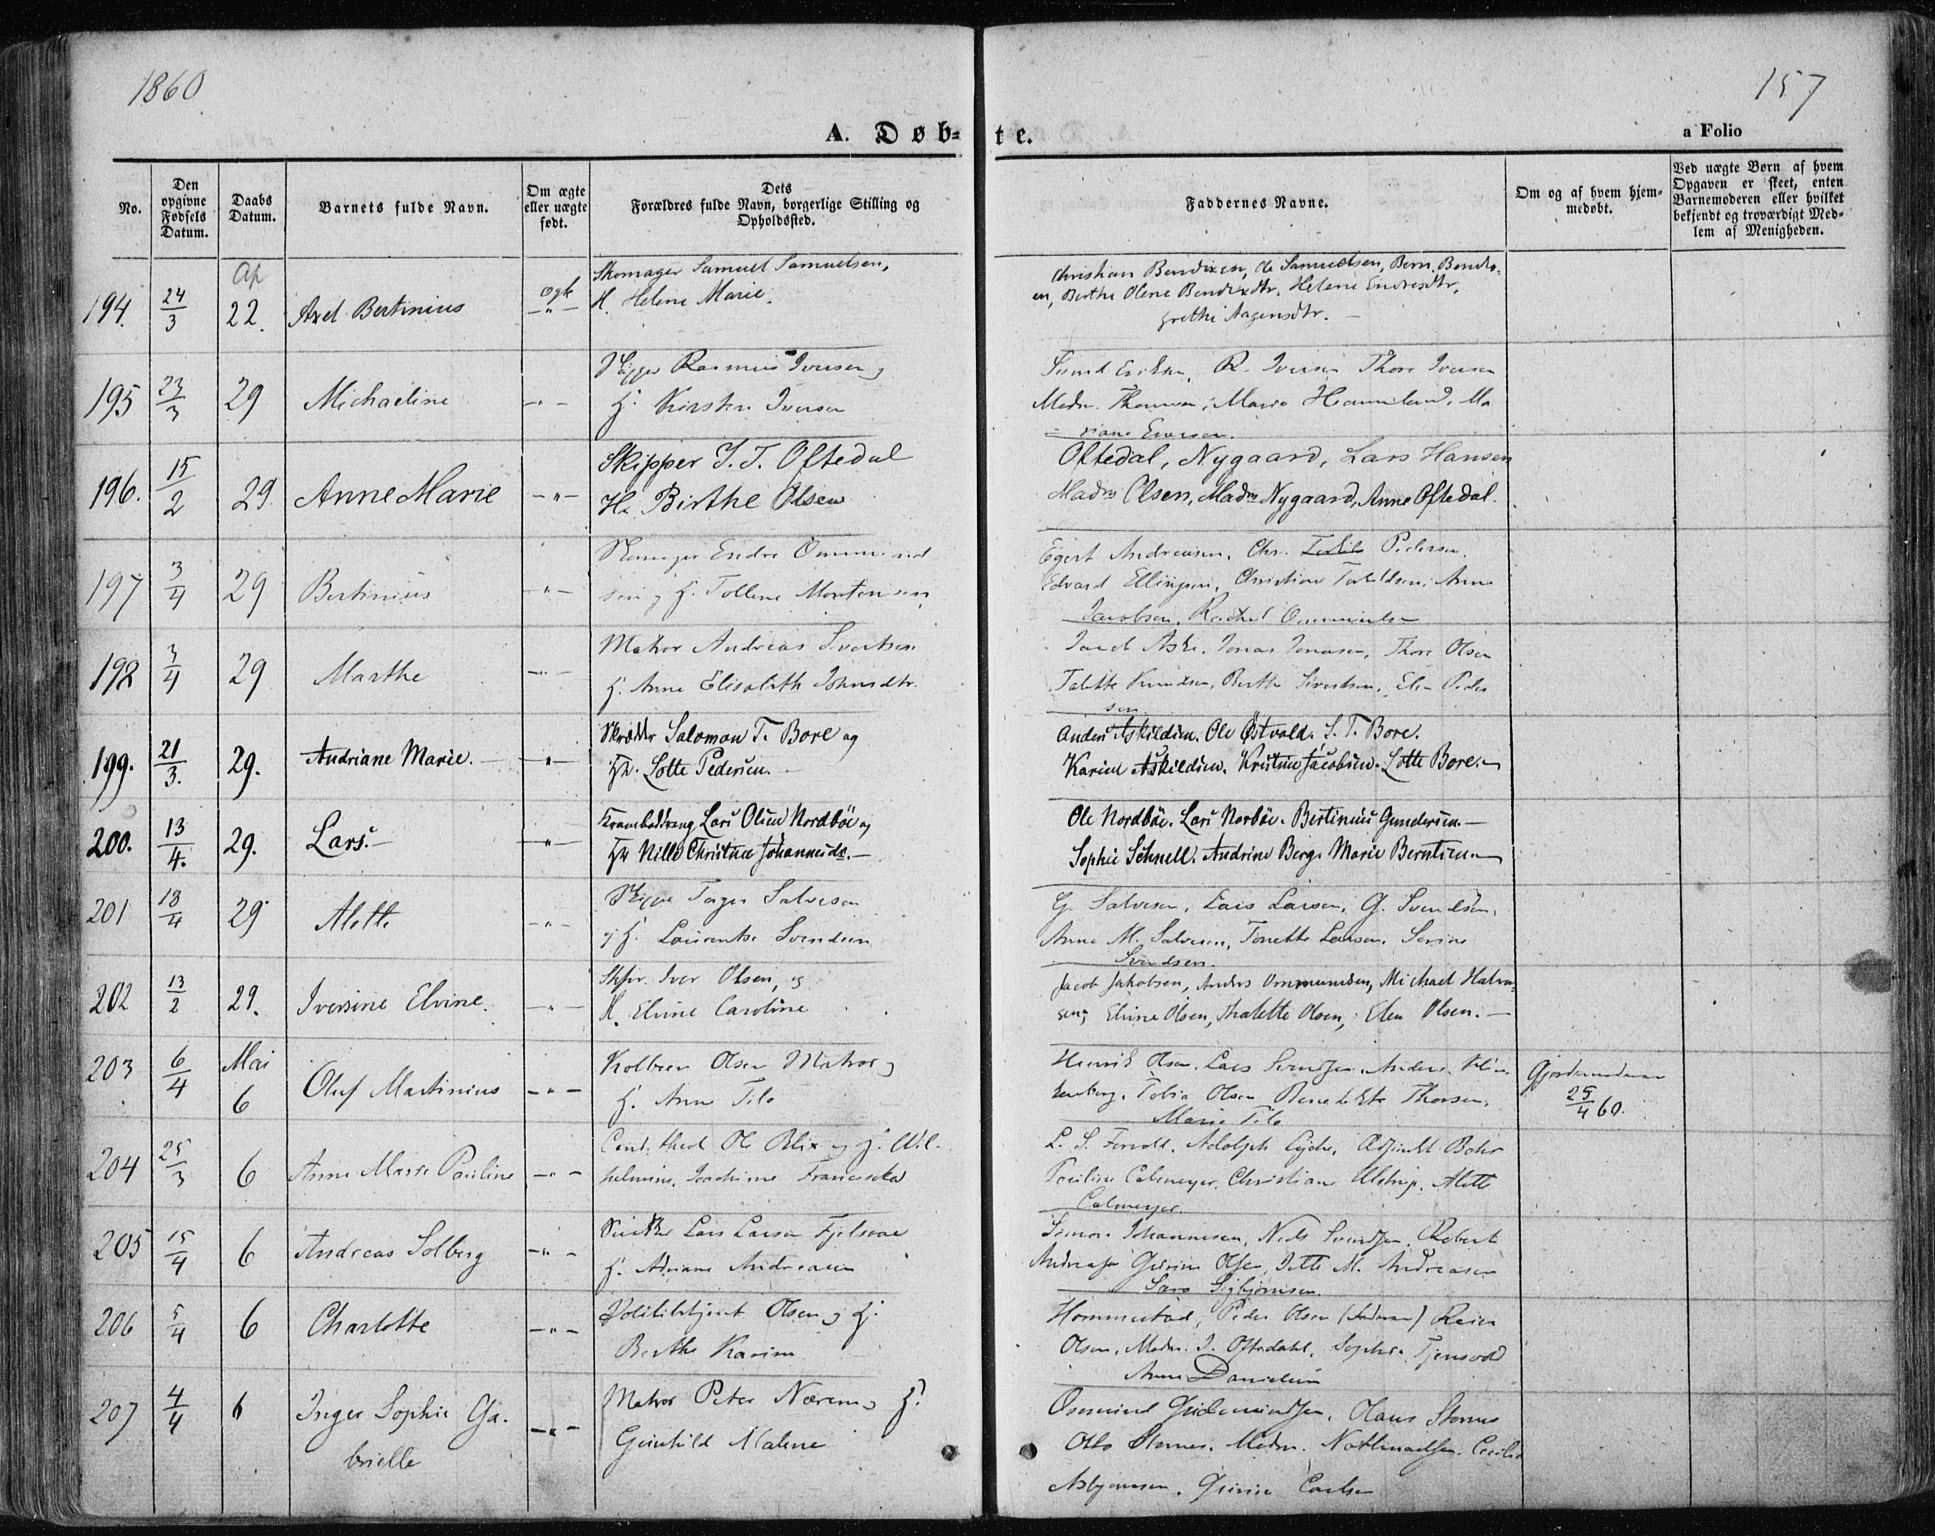 1860
157
A. Døb-
te.
a Folio
No.
Den opgivne Fødsels Datum.
Daabs Datum.
Barnets fulde Navn.
Om ægte eller uægte født.
Dets Forældres fulde Navn, borgerlige Stilling og Opholdsted.
Faddernes Navne.
Om og af hvem hjemmedøbt.
Ved uægte Børn af hvem Opgaven er skeet, enten Barnemoderen eller hvilket bekjendt og troværdigt Medlem af Menigheden.
194. 24/3 Ap 22. Axel Bertinius ægte
Skomager Samuel Samuelsen,
H. Helene Marie.
Christian Bendixen, Ole Samuelsen, Bern. Bendix-
en, Berthe Olene Bendixdtr. Helene Endresdtr,
grethe Aagensdtr. –
195 23/3 29 Michaeline -"-
Rasmus Iversen
H. Kirsten Iversen
R. Iversen Thore Iversen
Madm. Thomsen, Marie Hammeland, Ma
riane Iversen.
196. 15/2 29. Anne Marie -"-
Skipper I. T. Oftedal
Hu Birthe Olsen
Oftedal, Nygaard, Lars Hansen
Madm Olsen, Madm Nygaard, Anne Oftedal.
197 3/4 29 Bertinius -"-
Endre Ommund
sen g H. Tolline Mortensen
Egert Andreasen, Chr. Pedersen.
Edvard Ellingsen, Christine Torkildsen, Anne
Jacobsen, Rachel Ommundsen
198 3/4 29 Marthe -"-
Matros Andreas Sivertsen
H. Anne Elisabeth Johnsdtr.
Jacob Aske, Jonas Jonasen, Thore Olsen
Talette Knudsen, Berthe Sivertsen, Elen Peder
sen
199. 21/3. 29. Andriane Marie. -"-
Skrædder Salomon T. Bore og
H. Lotte Pedersen.
Anders Askildsen. Ole Østvold. S. T. Bore.
Karine Askildsen. Kristine Jacobsen. Lotte Bore.
200. 13/4. 29. Lars. -"-
Lars Olsen Nordbøe og
H Nille Christine Johannesdtr. –
Ole Nordbøe. Lars Norbøe. Bertinius Gundersen. –
Sophie Schnell. Andrine Berg. Marie Berntsen –
201 18/4 29 Alette -"-
Torger Salvesen
g H. Laurentse Svendsen
G. Salvesen, Lars Larsen, G. Svendsen,
Anne M. Salvesen, Tonette Larsen, Serine
Svendsen.
202 13/2 29. Iversine Elvine. -"-
Skpr. Iver Olsen, og
H. Elvine Caroline
Jacob Jakobsen, Anders Ommundsen, Michael Halvor-
sen, Elvine Olsen, Thalette Olsen, Elen Olsen. –
203 6/4 Mai 6 Oluf Martinius -"-
Kolbeen Olsen Matros g
H. Anne Tilo
Henrik Olsen, Lars Svendsen
Tobia Olsen Benedikte Thorsen,
Marie Tilo
29/4 60.
204 25/3 6 Anne Marie Pauline -"-
Cand. theol Ole Blix g H. Wil-
helmine Joachime Franciska
Adolph Eyde, Adjunkt Bahr
Pauline Calmeyer, Christiane Ulstrup, Alette
Calmeyer.
205 15/4 6 Andreas Solberg -"-
Lars Larsen
H. Adriane Andreasen
Simon Johannesen, Niels Svendsen, Robert
Andreasen Olsen, Jette M. Andreasen
Sara Sigbjørnsen
206 5/4 6 Charlotte -"-
Politibetjent Olsen g H.
Berthe Karine
Hommestad, Peder Olsen Reier
Olsen, Madm. I. Oftedahl, Sophie
Anne Danielsen
207 4/4 6 Inger Sophie Ga-
brielle -"-
Matros Peter Nærem g H.
Gunhild Malene
Osmund Gudmundsen, Hans Stornes
Otto Stornes, Madm. Nathanaelsen, Cecilie
Asbjørnsen, Carlsen